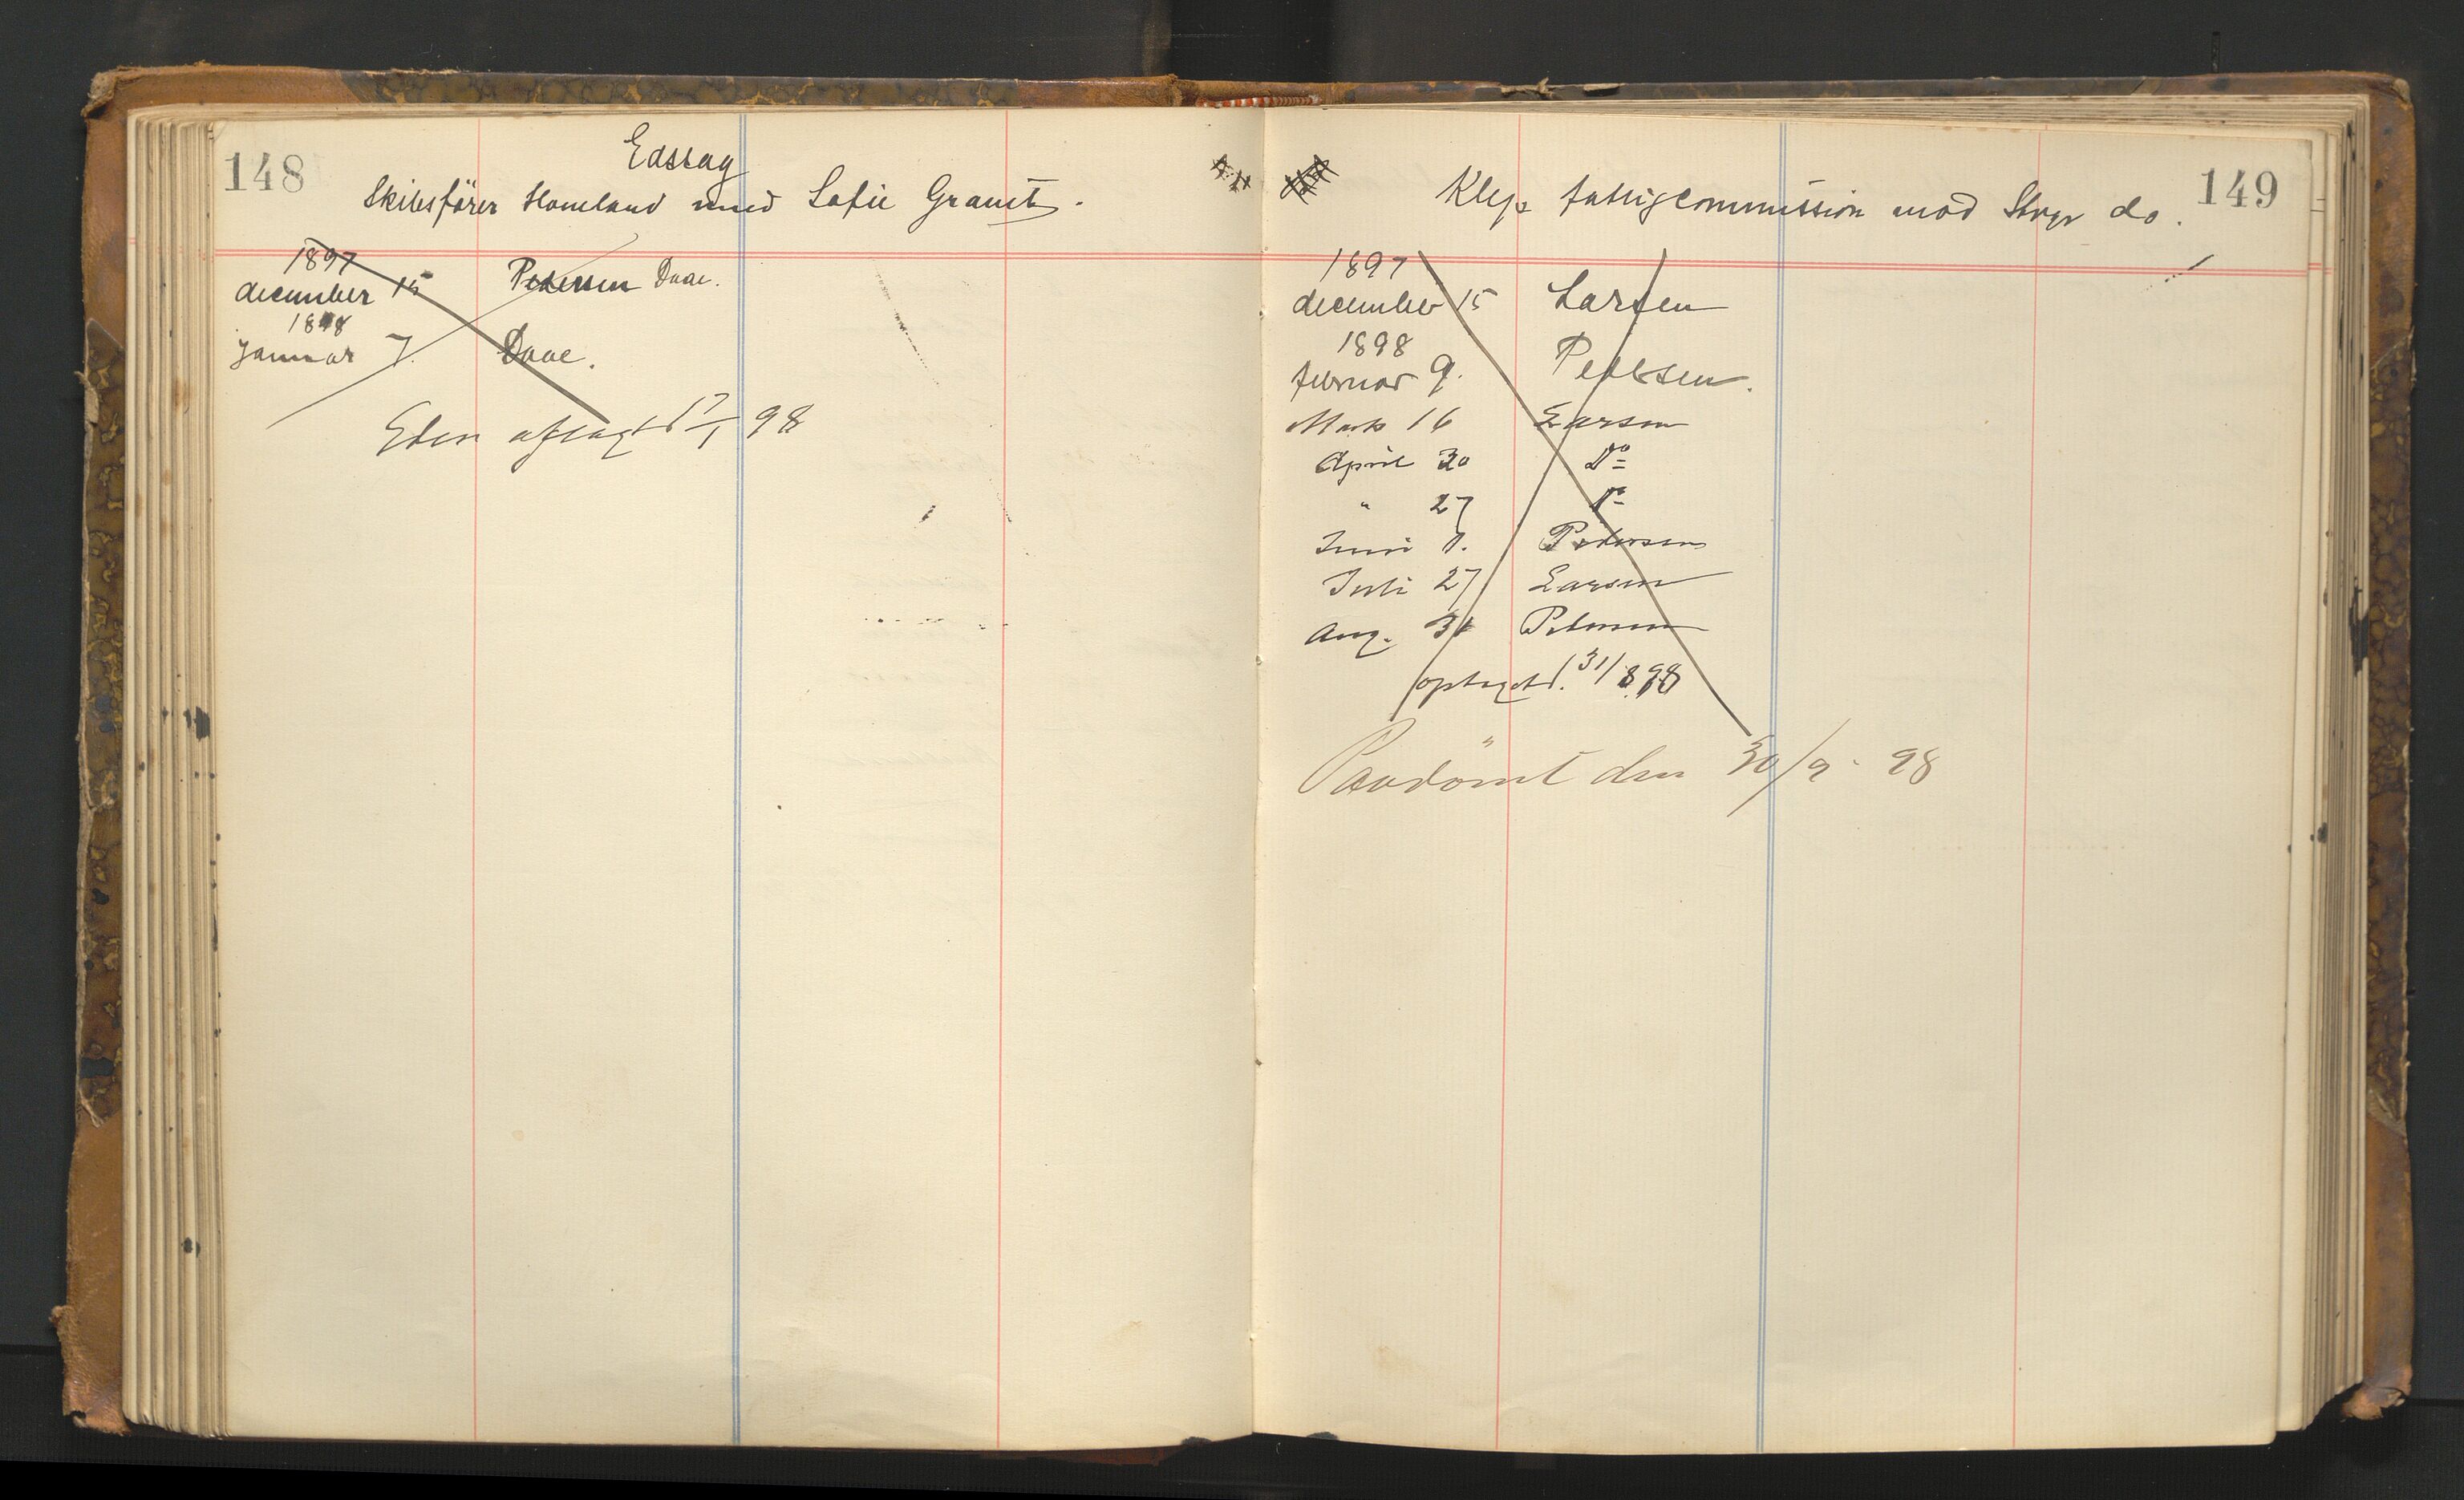 148
Edssag
Skibsfører Homeland mod Sofie Granit.
1897
december 15 Pedersen Daae.
1898
januar 7. Daae.
Eden aflagt 17/1 98
149
Klep fattigcommission mod Stryn do.
1897
december 15 Larsen
1898
februar 9. Pedersen.
Marts 16 Larsen
April 20 Do
" 27 Do
Juni 1. Pedersen
Juli 27 Larsen
Aug. 31 Pedersen
optaget d. 31/8 98
Paadömt den 30/9 - 98